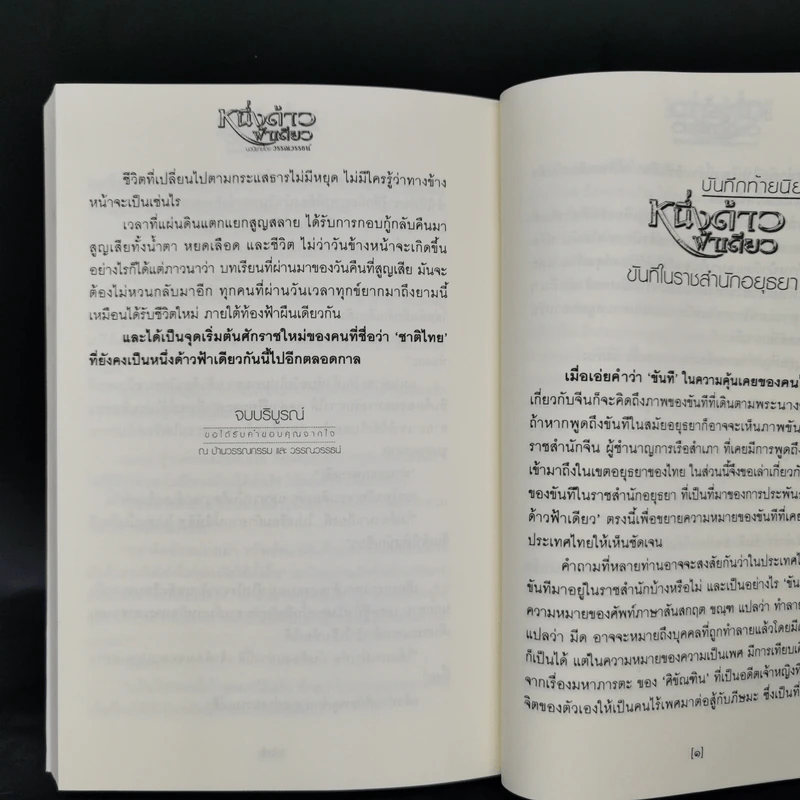 หนึ่งด้าว
ฟ้าเดียว
นวนิยายโดย วรรณวรรธน์
ชีวิตที่เปลี่ยนไปตามกระแสธารไม่มีหยุด ไม่มีใครรู้ว่าทางข้าง
หน้าจะเป็นเช่นไร
เวลาที่แผ่นดินแตกแยกสูญสลาย ได้รับการกอบกู้กลับคืนมา
สูญเสียทั้งน้ำตา หยดเลือด และชีวิต ไม่ว่าวันข้างหน้าจะเกิดขึ้น
อย่างไรก็ได้แต่ภาวนาว่า บทเรียนที่ผ่านมาของวันคืนที่สูญเสีย มันจะ
ต้องไม่หวนกลับมาอีก ทุกคนที่ผ่านวันเวลาทุกข์ยากมาถึงยามนี้
เหมือนได้รับชีวิตใหม่ ภายใต้ท้องฟ้าผืนเดียวกัน
และได้เป็นจุดเริ่มต้นศักราชใหม่ของคนที่ชื่อว่า ‘ชาติไทย’
ที่ยังคงเป็นหนึ่งด้าวฟ้าเดียวกันนี้ไปอีกตลอดกาล
จบบริบูรณ์
ขอได้รับคำขอบคุณจากใจ
ณ บ้านวรรณกรรม และ วรรณวรรธน์
บันทึกท้ายนิย
หนึ่งด้าว
ฟ้าเดียว
ขันทีในราชสำนักอยุธยา
เมื่อเอ่ยคำว่า ‘ขันที’ ในความคุ้นเคยของคน
เกี่ยวกับจีนก็จะคิดถึงภาพของขันทีที่เดินตามพระนาง
ถ้าหากพูดถึงขันทีในสมัยอยุธยาก็อาจจะเห็นภาพขัน
ราชสำนักจีน ผู้ชำนาญการเรือสำเภา ที่เคยมีการพูดถึง
เข้ามาถึงในเขตอยุธยาของไทย ในส่วนนี้จึงขอเล่าเกี่ยวก
ของขันทีในราชสำนักอยุธยา ที่เป็นที่มาของการประพัน
ด้าวฟ้าเดียว’ ตรงนี้เพื่อขยายความหมายของขันทีที่เคย
ประเทศไทยให้เห็นชัดเจน
คำถามที่หลายท่านอาจจะสงสัยกันว่าในประเทศไ
ขันทีมาอยู่ในราชสำนักบ้างหรือไม่ และเป็นอย่างไร ‘ขัน
ความหมายของศัพท์ภาษาสันสกฤต ขณฺฑ แปลว่า ทำลาย
แปลว่า มีด อาจจะหมายถึงบุคคลที่ถูกทำลายแล้วโดยมี
ก็เป็นได้ แต่ในความหมายของความเป็นเพศ มีการเทียบเคี
จากเรื่องมหาภารตะ ของ ‘ศิขัณฑิน’ ที่เป็นอดีตเจ้าหญิงที่
จิตของตัวเองให้เป็นคนไร้เพศมาต่อสู้กับภีษมะ ซึ่งเป็นที่
[๑]